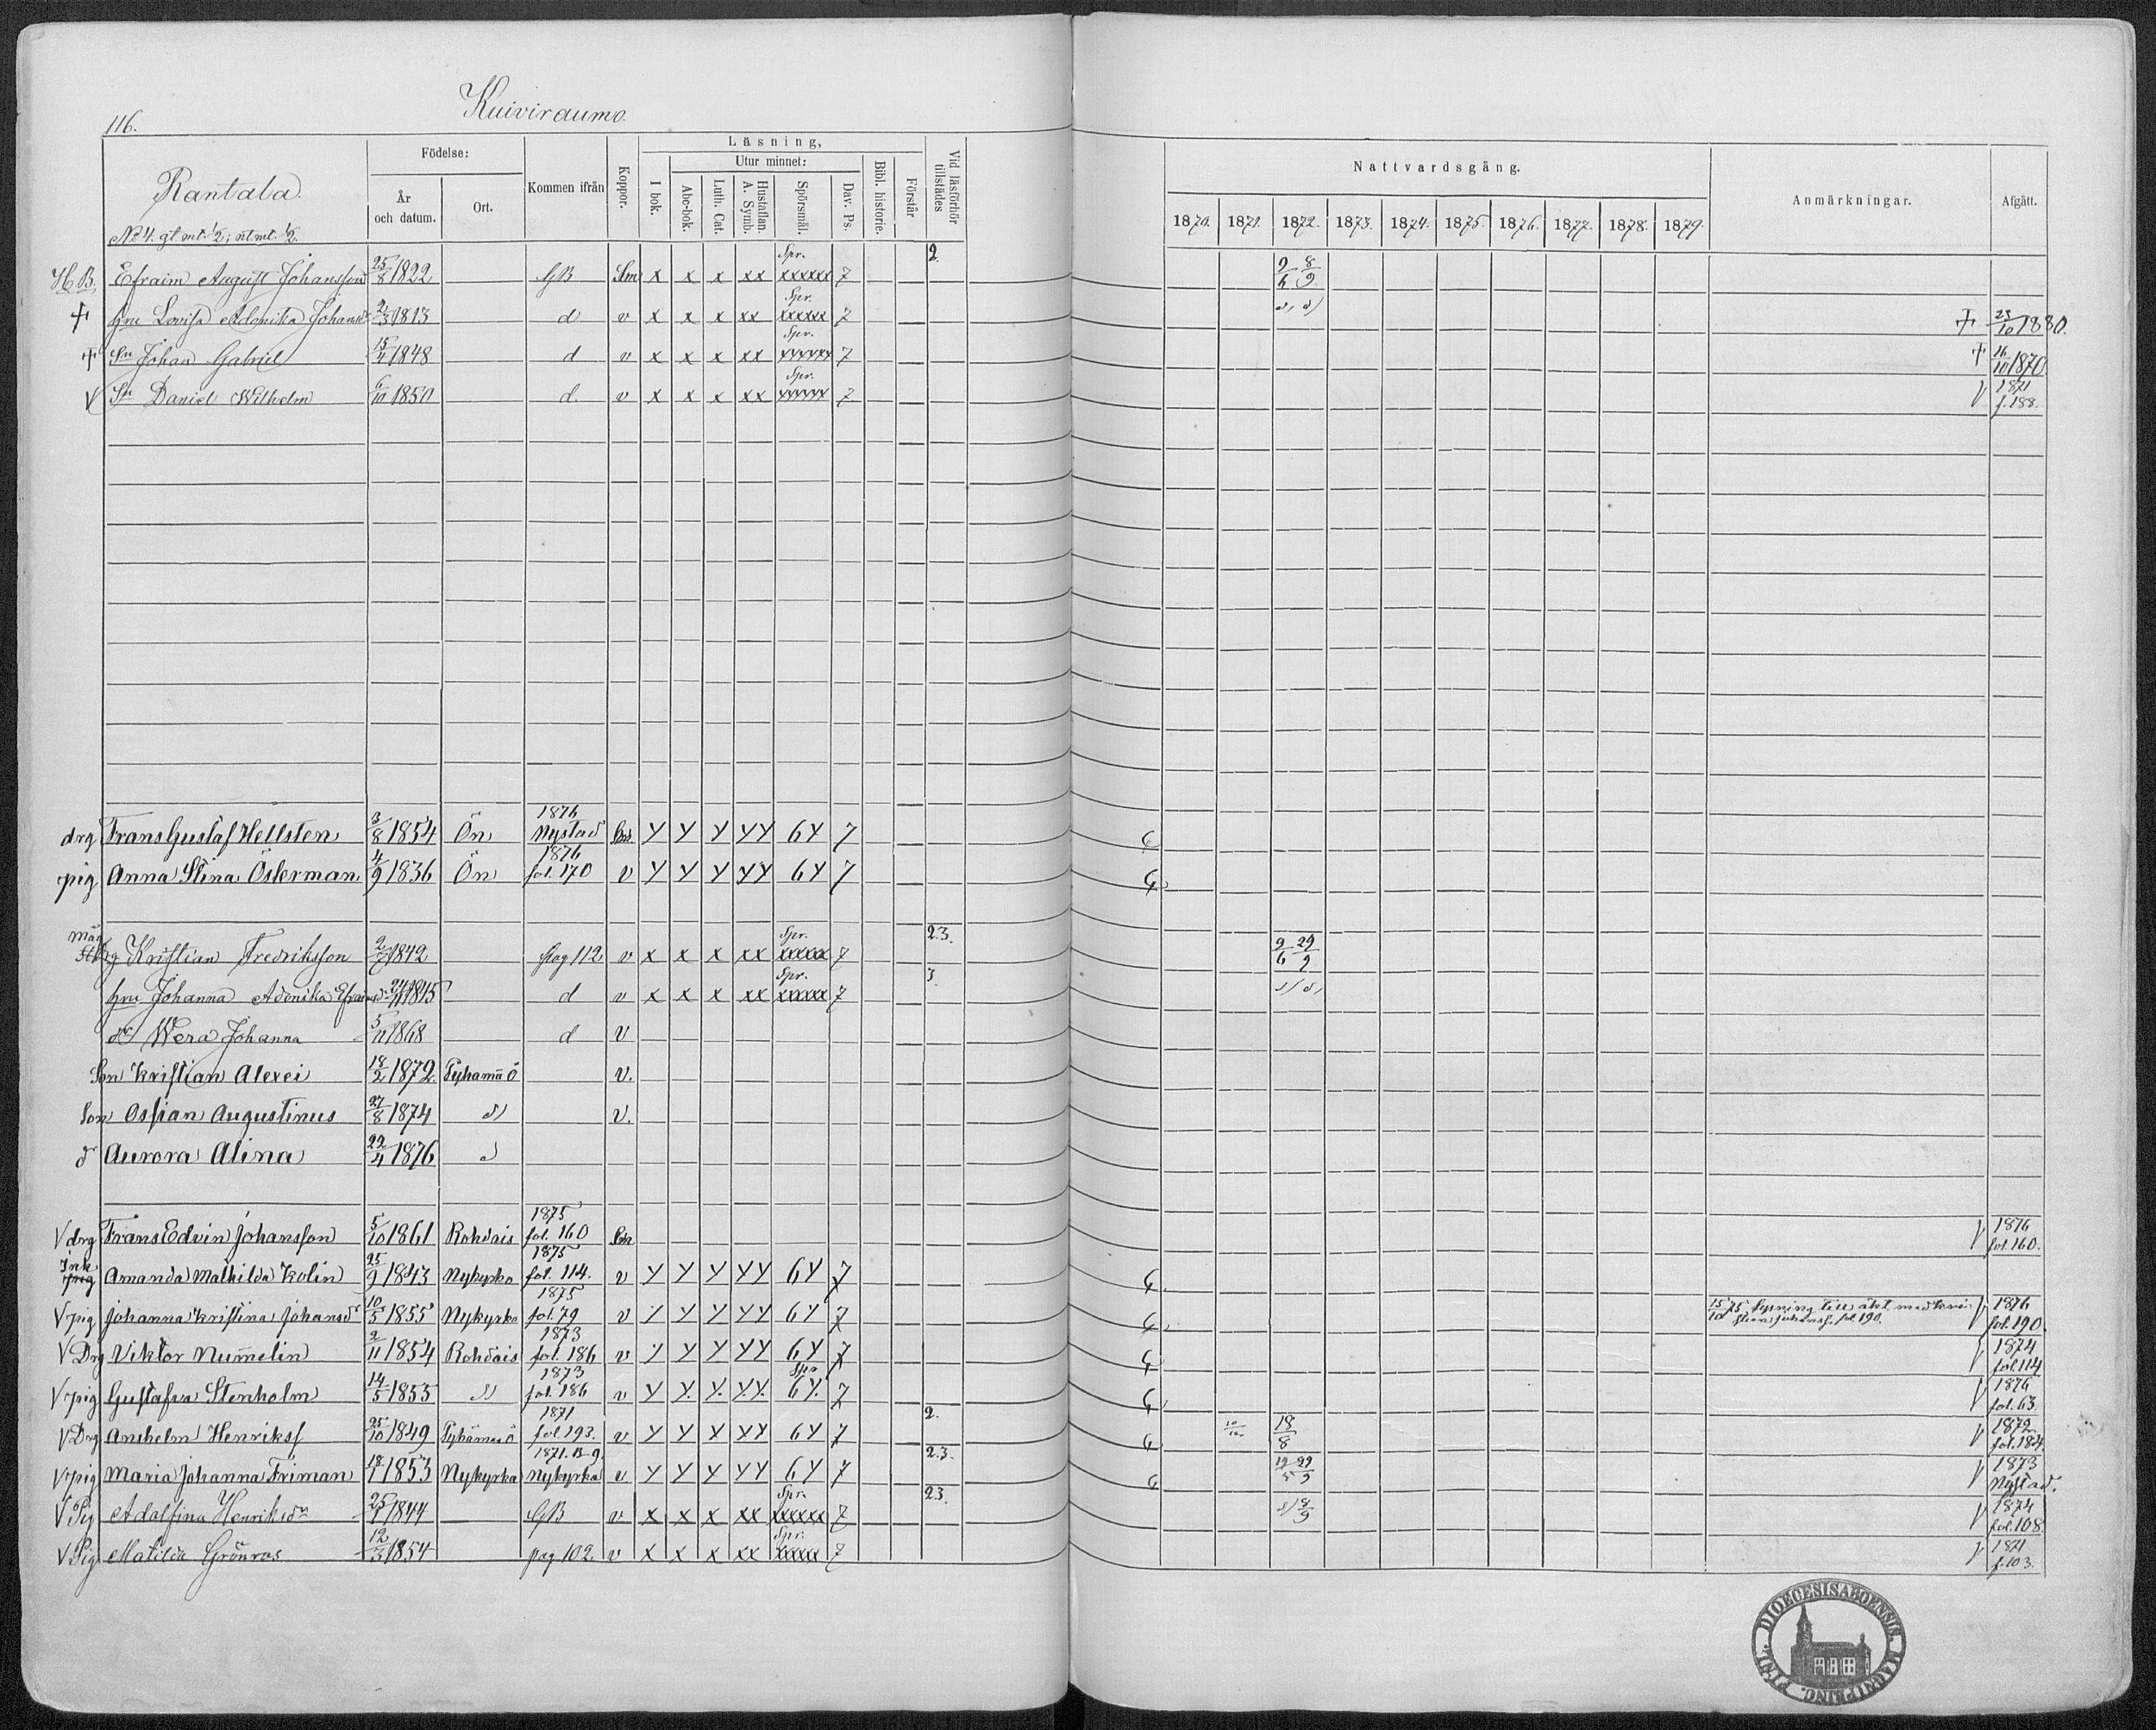 116.
Kuiviraumo.
Rantala.
No 4. gl mt. 1/2; nt mt. 1/2.
Födelse:
År och datum.
Ort.
Kommen ifrån
Koppor.
Läsning,
I bok.
Utur minnet:
Abc-bok.
Luth. Cat.
Hustaflan. A. Symb.
Spörsmål.
Dav. Ps.
Bibl. historie.
Förstår
Vid läsförhör tillstädes
Nattvardsgång.
1870. 1871. 1872. 1873. 1874. 1875. 1876. 1877. 1878. 1879.
Anmärkningar.
Afgått.
H.B. Efraim August Johansson 25/8 1822 GB Sm x x x xx Spr. xxxxxx 7 2. 9/6 8/9
† hu Lovisa Adonika Johansdr 2/3 1813 d v x x x xx Spr. xxxxxx 7 d/ d/ † 23/10 1880.
† Sn Johan Gabriel 15/4 1848 d v x x x xx Spr. xxxxxx 7 † 16/10 1870
V Sn Daniel Wilhelm 6/10 1850 d. v x x x xx Spr. xxxxxx 7 V 1871 f. 188.
drg Frans Gustaf Hellsten 3/8 1854 Ön 1876 Nystad y y y yy 6y 7
pig Anna Stina Österman 4/9 1836 Ön 1876 fol. 170 v y y y yy 6y 7
Kristian Fredriksson 2/7 1842 pag 112 v x x x xx Spr. xxxxxx 7 2.3. 9/6 29/9
hu Johanna Adonika Efraimsdr 1845 d v x x x xx Spr. xxxxxx 7 3 d/ d/
dr Wera Johanna 5/11 1868 d v
Son Kristian Alexei 18/2 1872. Pyhamaö v.
Son Ossian Augustinus 27/8 1874 d/ v.
dr Aurora Alina 22/4 1876 d
V drg Frans Edvin Johansson 5/10 1861 Rohdais 1875 fol. 160 Sm V 1876 fol. 160.
Inh. pig Amanda Mathilda Kolin 25/9 1843 Nykyrko 1875 fol. 114. v y y y yy 6y 7
V pig Johanna Kristina Johansdr 10/5 1855 Nykyrko 1875 fol. 79 v y y y yy 6y 7 15/10 75 lysning till äkt. med Kristian Johanss. fol. 190. V 1876 fol. 190.
V Drg Viktor Nummelin 2/11 1854 Rohdais 1873 fol. 186 v y y y yy 6y 7 V 1874 fol. 114
V pig Gustafva Stenholm 14/5 1855 d/ 1873 fol. 186 v y y. y. y.y. Spr 6y. 7 V 1876 fol. 63.
V Drg Anshelm Henrikss 25/10 1849 Pyhämaö 1871 fol. 193. v y y y yy 6y 7 2. 18/8 V 1872 fol. 184.
V pig Maria Johanna Friman 18/1 1853 Nykyrka 1871. B 9. Nykyrka v y y y yy 6y 7 2.3. V 1873 Nystad.
V Pig Adolfina Henriksdr 25/1 1844 GB v x x x xx Spr. xxxxxx 7 2.3. d/ 8/9 V 1874 fol. 108.
V Pig Matilda Grönros 12/3 1854 pag 102 v x x x xx Spr. xxxxx 7 V 1871 f. 103.
DIOECESIS ABOENSIS. MAGNI PRINC. FINL.